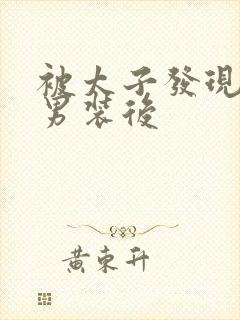 被太子發現
男裝後
黃東升